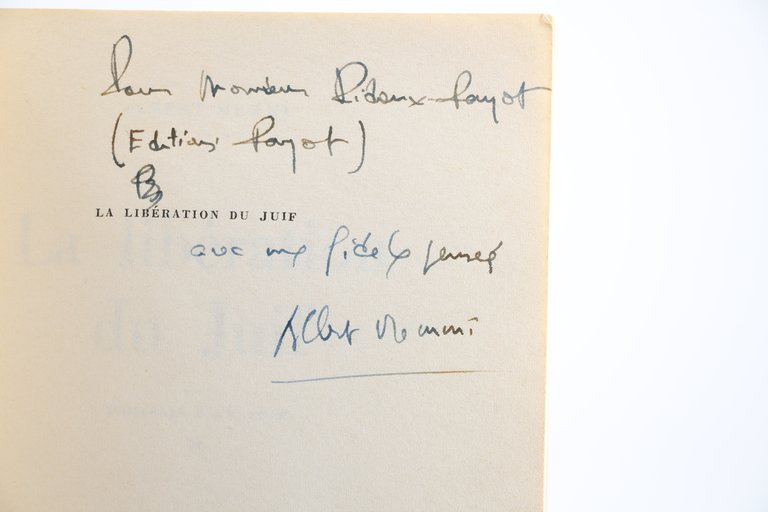 Pour Monsieur Rideux-Payot
(Editions Payot)
LA LIBÉRATION DU JUIF
avec ma fidèle pensée
Albert Memmi